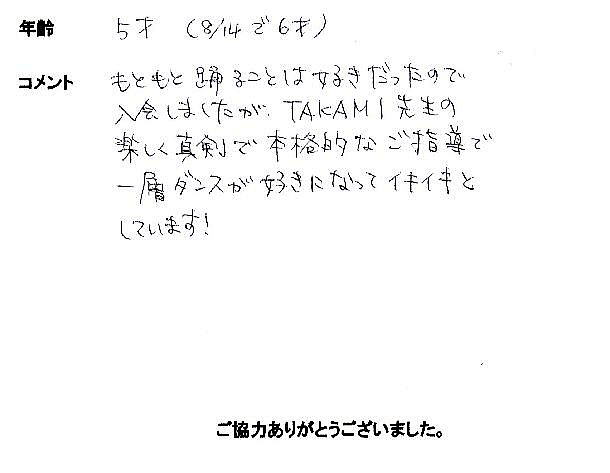 年齢 5才 (8/14で6才)
コメント もともと踊ることは好きだったので
入会しましたが、TAKAMI先生の
楽しく真剣で本格的なご指導で
一層ダンスが好きになってイキイキと
しています!
ご協力ありがとうございました。